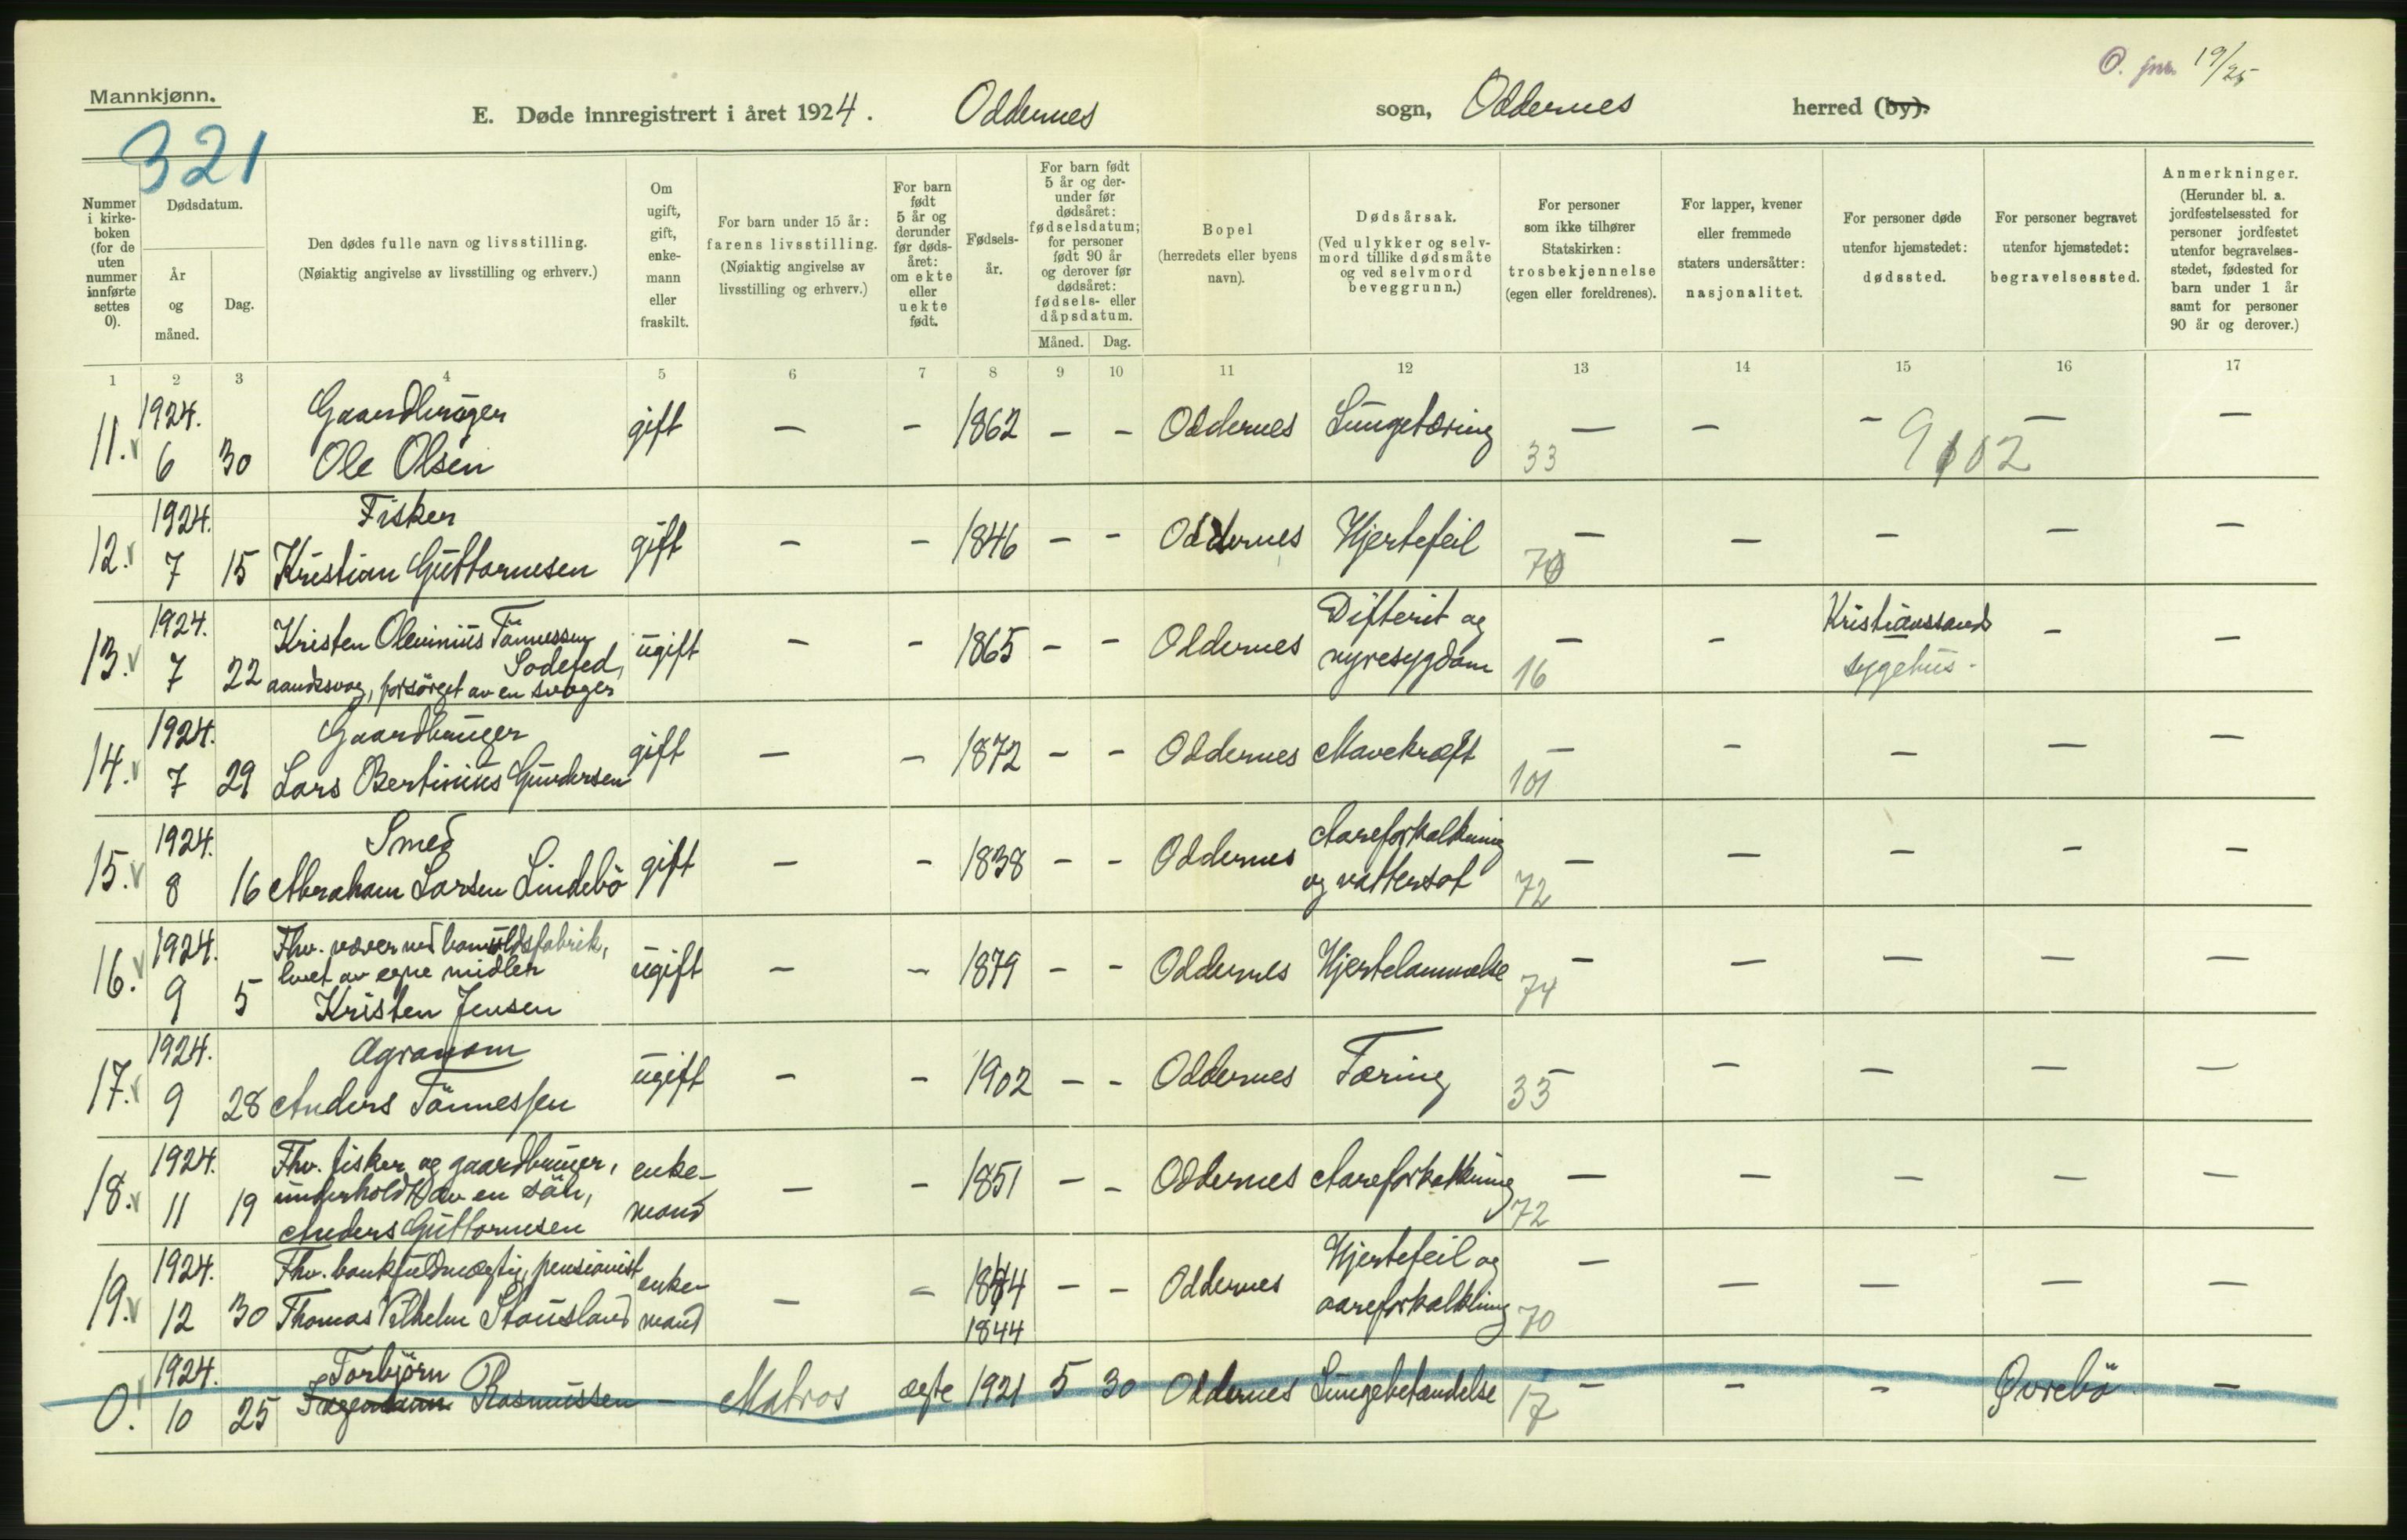 O. jnr. 19/25
Mannkjønn.
E. Døde innregistrert i året 1924. Oddernes sogn, Oddernes herred (by).
321
Nummer i kirkeboken (for de uten nummer innførte settes 0).
Dødsdatum.
År og måned.
Dag.
Den dødes fulle navn og livsstilling.
(Nøiaktig angivelse av livsstilling og erhverv.)
Om ugift, gift, enkemann eller fraskilt.
For barn under 15 år: farens livsstilling.
(Nøiaktig angivelse av livsstilling og erhverv.)
For barn født 5 år og derunder før dødsåret: om ekte eller uekte født.
Fødselsår.
For barn født 5 år og derunder før dødsåret: fødselsdatum; for personer født 90 år og derover før dødsåret: fødsels- eller dåpsdatum.
Måned. Dag.
Bopel
(herredets eller byens navn).
Dødsårsak.
(Ved ulykker og selvmord tillike dødsmåte og ved selvmord beveggrunn.)
For personer som ikke tilhører Statskirken: trosbekjennelse (egen eller foreldrenes).
For lapper, kvener eller fremmede staters undersåtter: nasjonalitet.
For personer døde utenfor hjemstedet: dødssted.
For personer begravet utenfor hjemstedet: begravelsessted.
Anmerkninger.
(Herunder bl. a. jordfestelsessted for personer jordfestet utenfor begravelsesstedet, fødested for barn under 1 år samt for personer 90 år og derover.)
1 2 3 4 5 6 7 8 9 10 11 12 13 14 15 16 17
11. 1924. 6 30 Gaardbruger Ole Olsen gift — - 1862 - - Oddernes Lungetæring 33 — - - — —
9102
12. 1924. 7 15 Fisker Kristian Guttormsen gift - - 1846 - - Oddernes Hjertefeil 70 — — - - —
13. 1924. 7 22 Kristen Olevinius Tönnessen Sodefed, aandssvag, forsörget av en svoger ugift - - 1865 - - Oddernes Difterit og nyresygdom 16 — - Kristianssands sygehus - - —
14. 1924. 7 29 Gaardbruger Lars Bertinius Gundersen gift — - 1872 - - Oddernes Mavekræft 101 — - - — —
15. 1924. 8 16 Smed Abraham Larsen Lindebö gift - - 1838 - - Oddernes Aareforkalkning og vattersot 72 — — - - -
16. 1924. 9 5 Fhv. væver ved bomuldsfabrik, levet av egne midler Kristen Jensen ugift - - 1879 - - Oddernes Hjertelammelse 74 - — — — —
17. 1924. 9 28 Agronom Anders Tönnessen ugift - - 1902 - - Oddernes Tæring 33 - - - - —
18. 1924. 11 19 Fhv. fisker og gaardbruger, underholdt av en sön, Anders Guttormsen enkemand - - 1851 - - Oddernes Aareforkalkning 72 — — - - -
19. 1924. 12 30 Fhv. bankfuldmægtig, pensionist Thomas Vilhelm Stausland enkemand — - 1844 1844 - - Oddernes Hjertefeil og aareforkalkling 70 - — - — —
0. 1924. 10 25 Torbjörn Rasmussen - Matros ægte 1921 5 30 Oddernes Lungebetændelse 17 - - - Øvrebö —